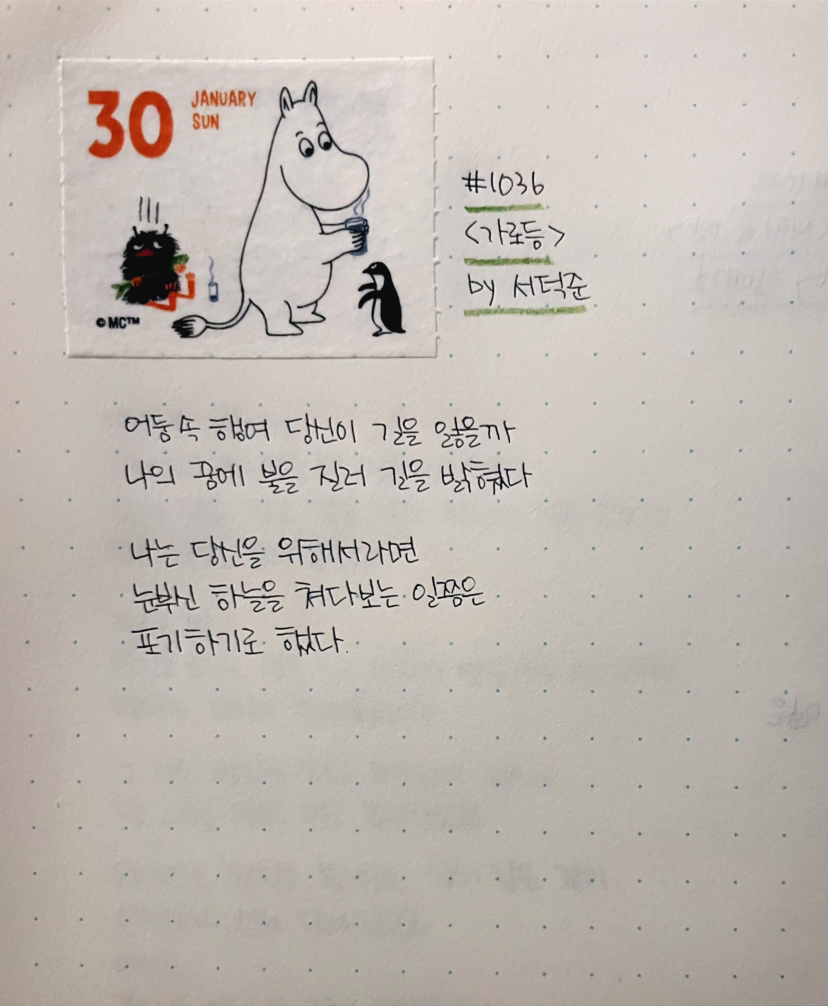 30
JANUARY
SUN
©MC™
#1036
<가로등>
by 서덕준
어둠속 행여 당신이 길을 잃을까
나의 꿈에 불을 질러 길을 밝혔다
나는 당신을 위해서라면
눈부신 하늘을 쳐다보는 일쯤은
포기하기로 했다.